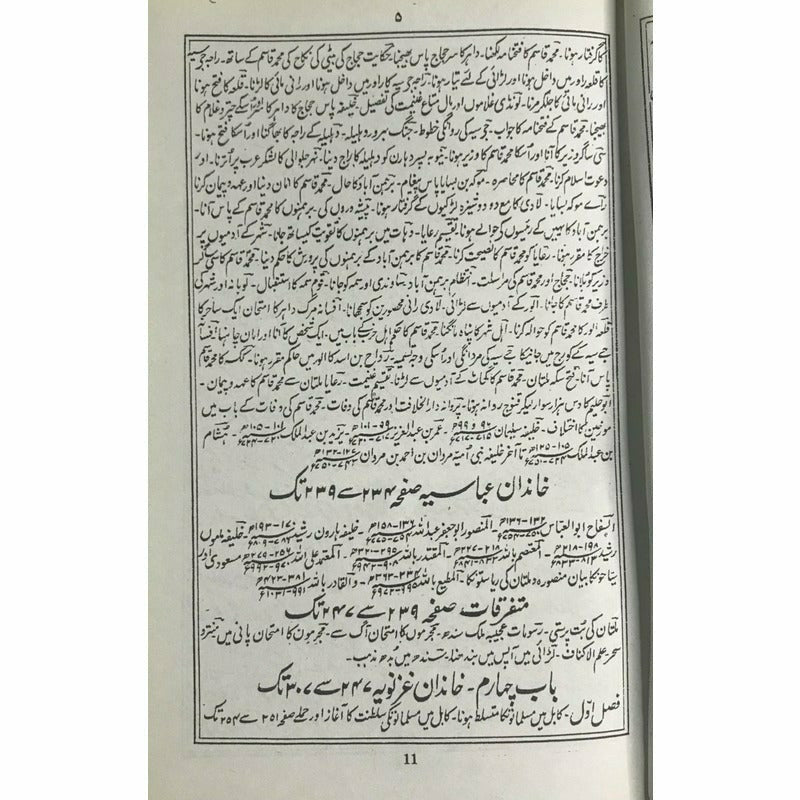 ۵
کا گرفتار ہونا۔ محمد قاسم کا فتحنامہ لکھنا۔ داہر کا سر حجاج پاس بھیجنا۔ حکایت حجاج کی بیٹی کی نکاح کی محمد قاسم کے ساتھ۔ راجہ جے سیہ
کا قلعہ راور میں داخل ہونا اور لڑائی کے لئے تیار ہونا۔ راجہ جے سیہ کا راور میں داخل ہونا اور رانی مائی کا لڑنا۔ قلعہ کا فتح ہونا
اور رانی مائی کا جلکر مرنا۔ لونڈی غلاموں اور مال متاع غنیمت کی تفصیل۔ خلیفہ پاس حجاج کا داہر کا سر چتر و غلام کا
بھیجنا۔ محمد قاسم کے فتحنامہ کا جواب۔ جے سیہ کی روانگی خطوط۔ جنگ بہرور و دہلیلہ۔ دہلیلہ کے راجہ کا بھاگنا اور اُسکا فتح ہونا۔
سی ساگر وزیر کا آنا اور اُسکا محمد قاسم کا وزیر ہونا۔ نیوبہ پسر دہارن کو دہلیلہ کا راج دینا۔ نہر جلوالی کا لشکر عرب پر اُترنا۔ اور
دعوت اسلام کرنا۔ محمد قاسم کا محاصرہ۔ موکہ بن بسایا پاس پیغام۔ برہمن آباد کا حال۔ محمد قاسم کا امان دینا اور عہد و پیمان کرنا
رائے موکہ بسایا۔ لادی کا مع دو دوشیزہ لڑکیوں کے گرفتار ہونا۔ پیشہ وروں کی۔ برہمنوں کا محمد قاسم کے پاس آنا۔
برہمن آباد کا نہیں رئیسوں کی حوالے ہونا۔ تقسیم رعایا۔ دہات میں برہمنوں کا تقویت کیساتھ جانا۔ شہر کے آدمیوں پر
خراج کا مقرر ہونا۔ رعایا کو محمد قاسم کا نصیحت کرنا۔ محمد قاسم کا برہمن آباد کے برہمنوں کی پرورش کا حکم دینا۔ محمد قاسم کا سی ساگر
وزیر کو بلانا۔ حجاج اور محمد قاسم کی مراسلت۔ انتظام برہمن آباد۔ ساوندی اور سمہ کو جانا۔ قوم سمہ کا استقبال۔ لوہانہ اور شہر کی
طرف محمد قاسم کا جانا۔ الور کے آدمیوں سے لڑائی۔ لادی رانی محصورین کو سمجھانا۔ افسانہ مرگ داہر کا امتحان ایک ساحر کا
قلعہ الور کا محمد قاسم کو حوالہ کرنا۔ اہل شہر کا پناہ مانگنا۔ محمد قاسم کا حکم اہل حرب کے باب میں۔ ایک شخص کا آنا اور امان چاہنا۔
جے سیہ کے کورج میں جانے کا۔ جے سیہ کی مردانگی اور اُسکی وجہ تسمیہ۔ رواح بن اسد کا الور میں حاکم مقرر ہونا۔ ککسہ کا محمد قاسم
پاس آنا۔ فتح سکہ ملتان۔ محمد قاسم کا گھاٹ کے آدمیوں سے لڑنا۔ تقسیم غنیمت۔ رعایا ملتان سے محمد قاسم کا عہد و پیمان۔
ابو حلیم کا دس ہزار سوار لیکر قنوج روانہ ہونا۔ پروانہ دار الخلافت اور محمد قاسم کی وفات۔ محمد قاسم کی وفات کے باب میں
مورخین کا اختلاف۔ خلیفہ سلیمان ۹۶ و ۹۹ / ۷۱۵-۷۱۷۔ عمر بن عبد العزیز ۹۹-۱۰۱ / ۷۱۷-۷۲۰۔ یزید بن عبد الملک ۱۰۱-۱۰۵ / ۷۲۰-۷۲۴۔ ہشام
بن عبد الملک ۱۰۵-۱۲۵ / ۷۲۴ تا آخر خلیفہ بنی اُمیہ مروان بن احمد بن مروان ۱۲۷-۱۳۲
خاندان عباسیہ صفحہ ۲۳۴ سے ۲۳۹ تک
السفاح ابو العباس ۱۳۲-۱۳۶ المنصور ابو جعفر عبد اللہ ۱۳۶-۱۵۸ / ۷۵۴-۷۷۵۔ خلیفہ ہارون رشید ۱۷۰-۱۹۳ / ۷۸۶-۸۰۹۔ خلیفہ ماموں
رشید ۱۹۸-۲۱۸ / ۸۱۳-۸۳۳۔ المعتصم باللہ ۲۱۸-۲۲۷ / ۸۳۳-۸۴۱۔ المقتدر باللہ ۲۹۵-۳۲۰ / ۹۰۸۔ المعتمد علی اللہ ۲۵۶-۲۷۹ مسعودی اور
سیاحونکا بیان منصورہ و ملتان کی ریاستونکا۔ المطیع باللہ ۳۳۴-۳۶۳۔ والقادر باللہ ۳۸۱-۴۲۲ / ۹۹۱-۱۰۳۱
متفرقات صفحہ ۲۳۹ سے ۲۴۷ تک
ملتان کی بُت پرستی۔ رسومات عجیبہ ملک سندھ۔ مجرموں کا امتحان آگ سے۔ مجرموں کا امتحان پانی میں۔ منترو
سحر علم الاکناف۔ لڑائی میں آپس میں بندھنا۔ سندھ میں بُدھ مذہب۔
باب چہارم۔ خاندان غزنویہ ۲۴۷ سے ۳۰۷ تک
فصل اوّل۔ کابل میں مسلمانونکا متسلط ہونا۔ کابل میں مسلمانونکی سلطنت کا آغاز اور حملے صفحہ ۲۵۱ سے ۲۵۴ تک
11